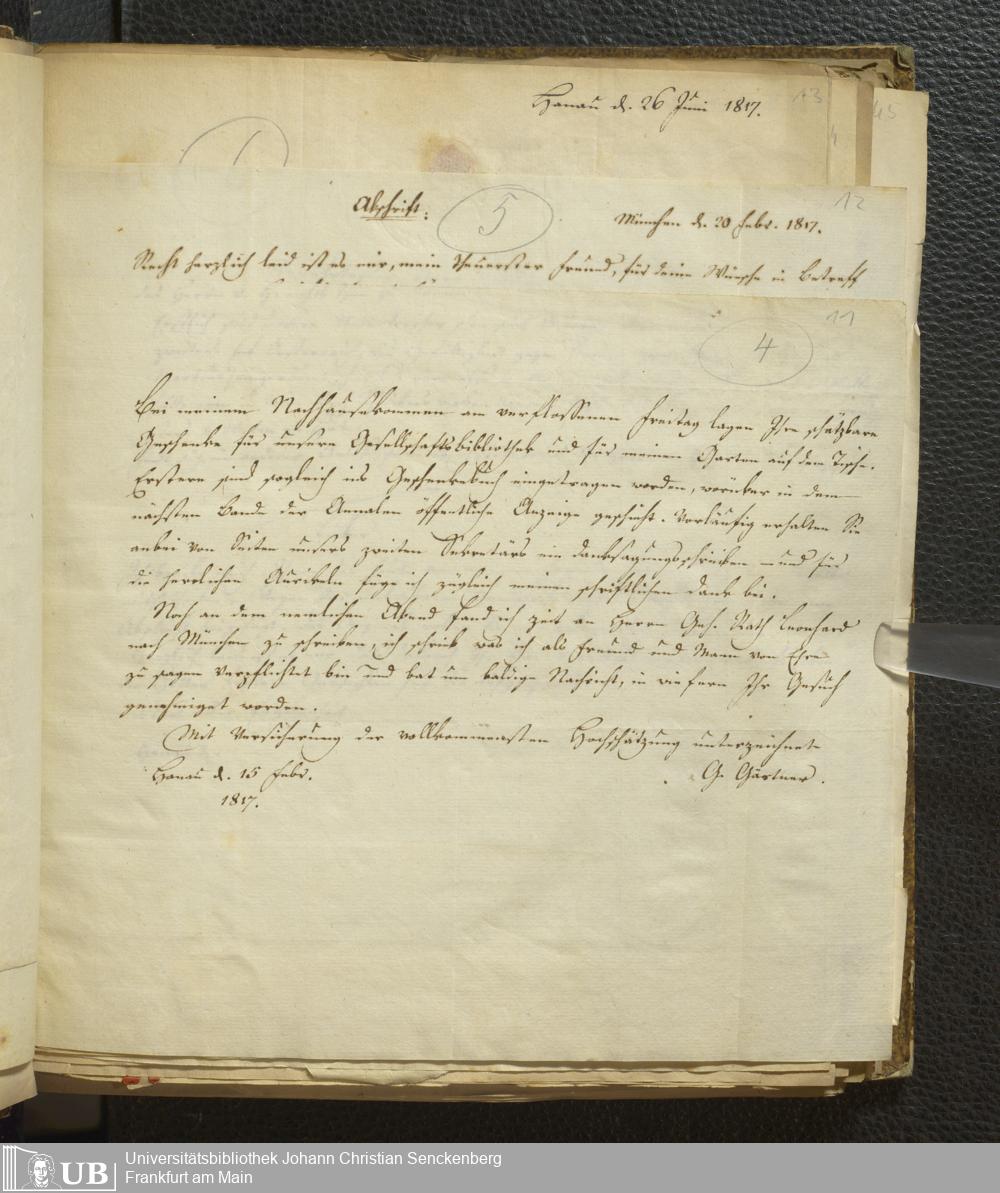 Hanau d. 26 Juni 1817.
13
45
1
4
Abschrift:
5
12
München d. 20 Febr. 1817.
Recht herzlich leid ist es mir, mein theuerster Freund, für deine Wünsche in Betreff
11
4
Bei meinem Nachhausekommen am verflossenen Freitag lagen Ihre schätzbare
Geschenke für unsere Gesellschaftsbibliothek und für meinen Garten auf dem Tische.
Erstere sind sogleich ins Geschenkebuch eingetragen worden, worüber in dem
nächsten Bande der Annalen öffentliche Anzeige geschieht. Vorläufig erhalten Sie
anbei von Seiten unsers zweiten Sekretärs ein Danksagungsschreiben – und für
die herrlichen Aurikeln füge ich zugleich meinen schriftlichen Dank bei.
Noch an dem nemlichen Abend fand ich Zeit an Herrn Geh. Rath Leonhard
nach München zu schreiben, ich schrieb was ich als Freund und Mann von Ehre
zu sagen verpflichtet bin und bat um baldige Nachricht, in wie fern Ihr Gesuch
genehmiget worden.
Mit Versicherung der vollkommensten Hochschätzung unterzeichnet
Hanau d. 15 Febr.
G. Gärtner.
1817.
UB
Universitätsbibliothek Johann Christian Senckenberg
Frankfurt am Main